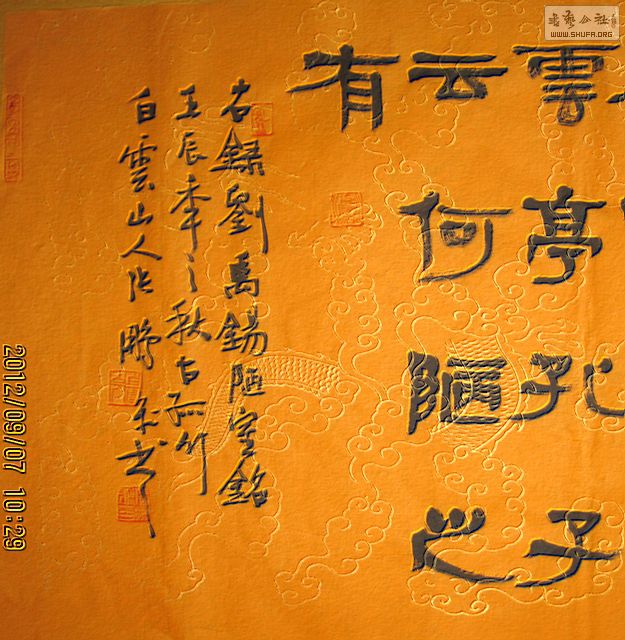 雲亭孔子
云何陋之
有
右録劉禹錫陋室銘
壬辰秊之秋古孤竹
白雲山人张鵬書
書藝公社
WWW.SHUFA.ORG
2012/09/07 10:29